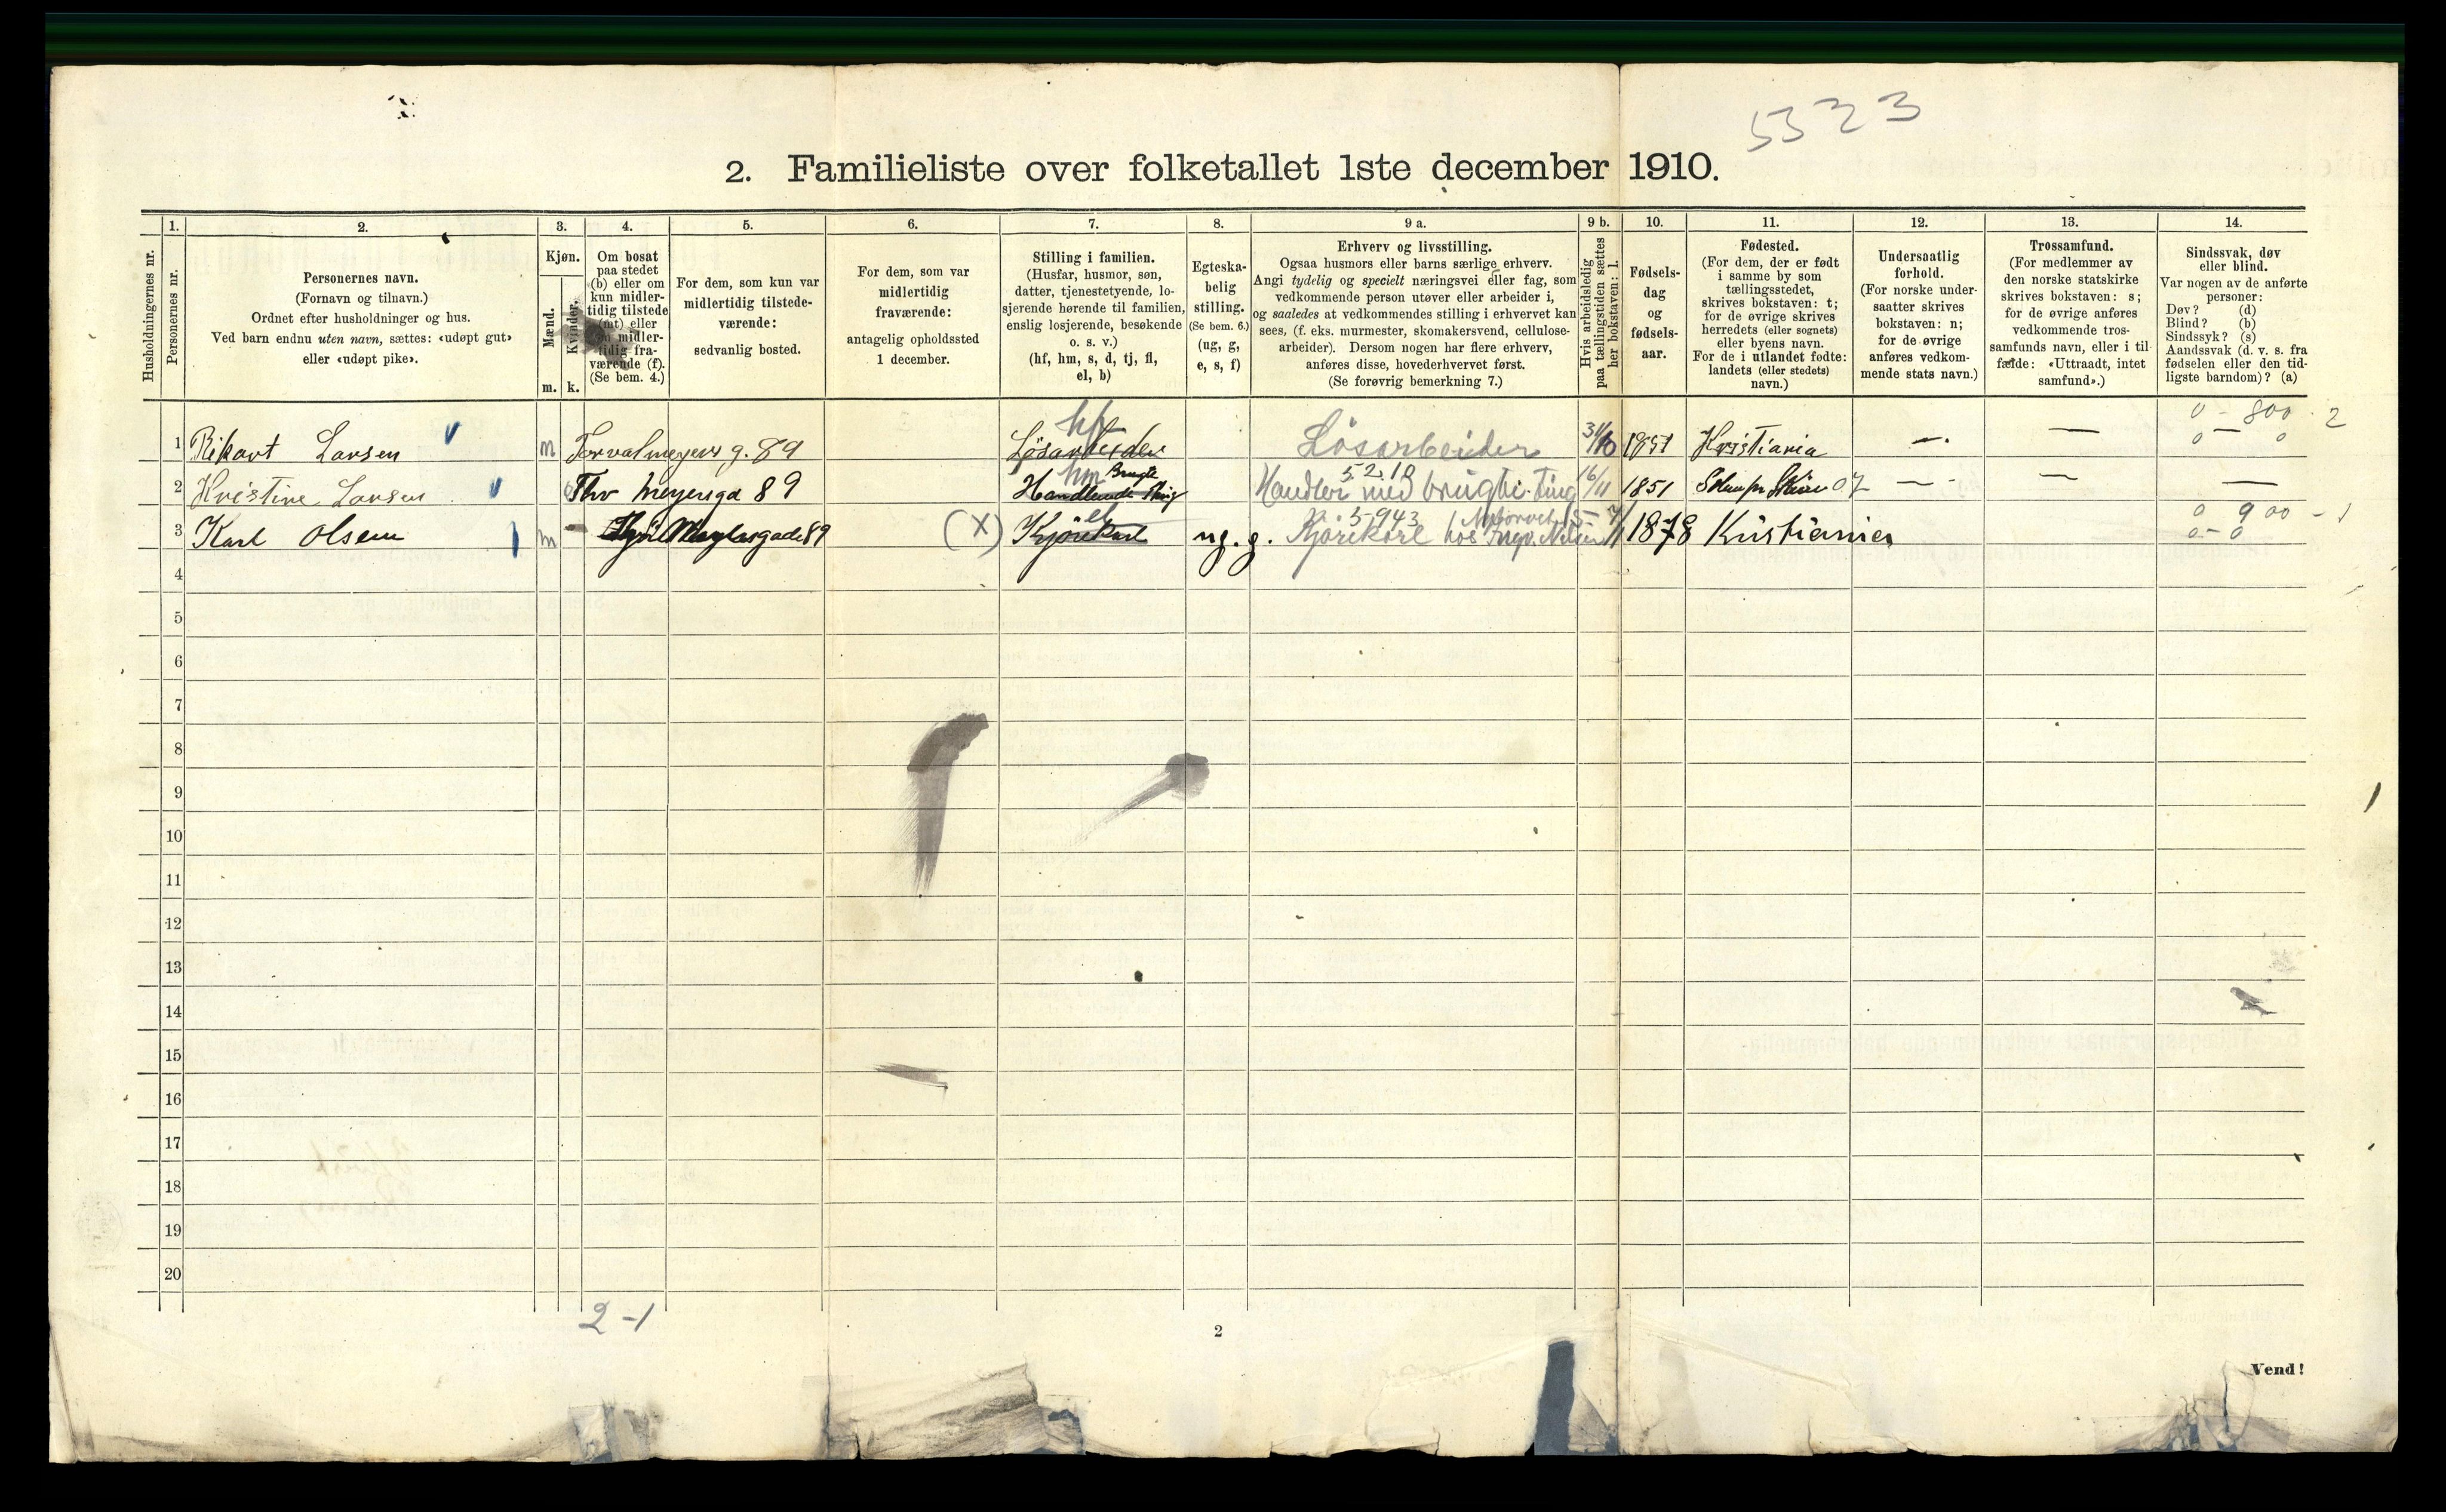 5323
2. Familieliste over folketallet 1ste december 1910.
Husholdningernes nr.
1.
Personernes nr.
2.
Personernes navn.
(Fornavn og tilnavn.)
Ordnet efter husholdninger og hus.
Ved barn endnu uten navn, sættes: «udøpt gut»
eller «udøpt pike».
3.
Kjøn.
Mænd.
Kvinder.
m.
k.
4.
Om bosat
paa stedet
(b) eller om
kun midler-
tidig tilstede
(mt) eller
om midler-
tidig fra-
værende (f).
(Se bem. 4.)
5.
For dem, som kun var
midlertidig tilstede-
værende:
sedvanlig bosted.
6.
For dem, som var
midlertidig
fraværende:
antagelig opholdssted
1 december.
7.
Stilling i familien.
(Husfar, husmor, søn,
datter, tjenestetyende, lo-
sjerende hørende til familien,
enslig losjerende, besøkende
o. s. v.)
(hf, hm, s, d, tj, fl,
el, b)
8.
Egteska-
belig
stilling.
(Se bem. 6.)
(ug, g,
e, s, f)
9 a.
Erhverv og livsstilling.
Ogsaa husmors eller barns særlige erhverv.
Angi tydelig og specielt næringsvei eller fag, som
vedkommende person utøver eller arbeider i,
og saaledes at vedkommendes stilling i erhvervet kan
sees, (f. eks. murmester, skomakersvend, cellulose-
arbeider). Dersom nogen har flere erhverv,
anføres disse, hovederhvervet først.
(Se forøvrig bemerkning 7.)
9 b.
Hvis arbeidsledig
paa tællingstiden sættes
her bokstaven: l.
10.
Fødsels-
dag
og
fødsels-
aar.
11.
Fødested.
(For dem, der er født
i samme by som
tællingsstedet,
skrives bokstaven: t;
for de øvrige skrives
herredets (eller sognets)
eller byens navn.
For de i utlandet fødte:
landets (eller stedets)
navn.)
12.
Undersaatlig
forhold.
(For norske under-
saatter skrives
bokstaven: n;
for de øvrige
anføres vedkom-
mende stats navn.)
13.
Trossamfund.
(For medlemmer av
den norske statskirke
skrives bokstaven: s;
for de øvrige anføres
vedkommende tros-
samfunds navn, eller i til-
fælde: «Uttraadt, intet
samfund».)
14.
Sindssvak, døv
eller blind.
Var nogen av de anførte
personer:
Døv? (d)
Blind? (b)
Sindssyk? (s)
Aandssvak (d. v. s. fra
fødselen eller den tid-
ligste barndom)? (a)
hf 0 - 800 2
1 Rikart Larsen m Torvalmeyers g. 89 Løsarbeider Løsarbeider 31/10 1851 Kristiania — — 0 0
hm Brugte 5210
2 Kristine Larsen Thv Meyersgd 89 Handlende ting Handler med brugte ting 16/11 1851 07 — — —
el 5943 0 900 - 1
3 Karl Olsen m Meyersgade 89 (X) Kjørekarl ug. g. Kjørekarl hos 1878 Kristiania 0 - 0
4
5
6
7
8
9
10
11
12
13
14
15
16
17
18
19
20
2-1
2
Vend!